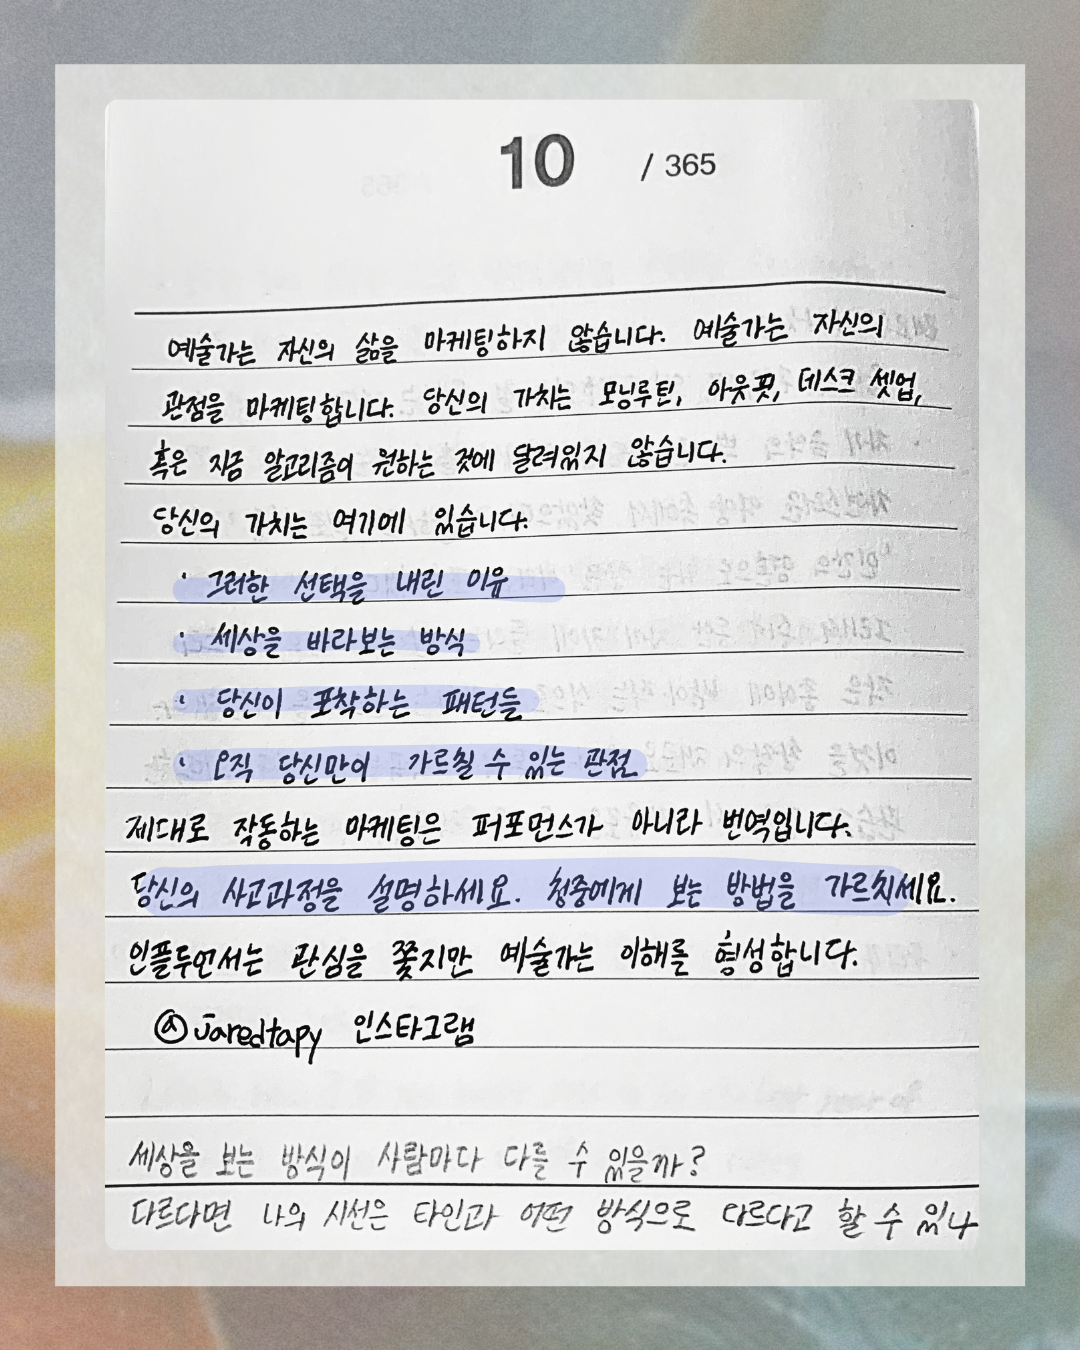 10 / 365
예술가는 자신의 삶을 마케팅하지 않습니다. 예술가는 자신의
관점을 마케팅합니다. 당신의 가치는 모닝루틴, 아웃핏, 데스크 셋업,
혹은 지금 알고리즘이 원하는 것에 달려있지 않습니다.
당신의 가치는 여기에 있습니다.
· 그러한 선택을 내린 이유
· 세상을 바라보는 방식
· 당신이 포착하는 패턴들
· 오직 당신만이 가르칠 수 있는 관점
제대로 작동하는 마케팅은 퍼포먼스가 아니라 번역입니다.
당신의 사고과정을 설명하세요. 청중에게 보는 방법을 가르치세요.
인플루언서는 관심을 쫓지만 예술가는 이해를 형성합니다.
@jaredtapy 인스타그램
세상을 보는 방식이 사람마다 다를 수 있을까?
다르다면 나의 시선은 타인과 어떤 방식으로 다르다고 할 수 있나